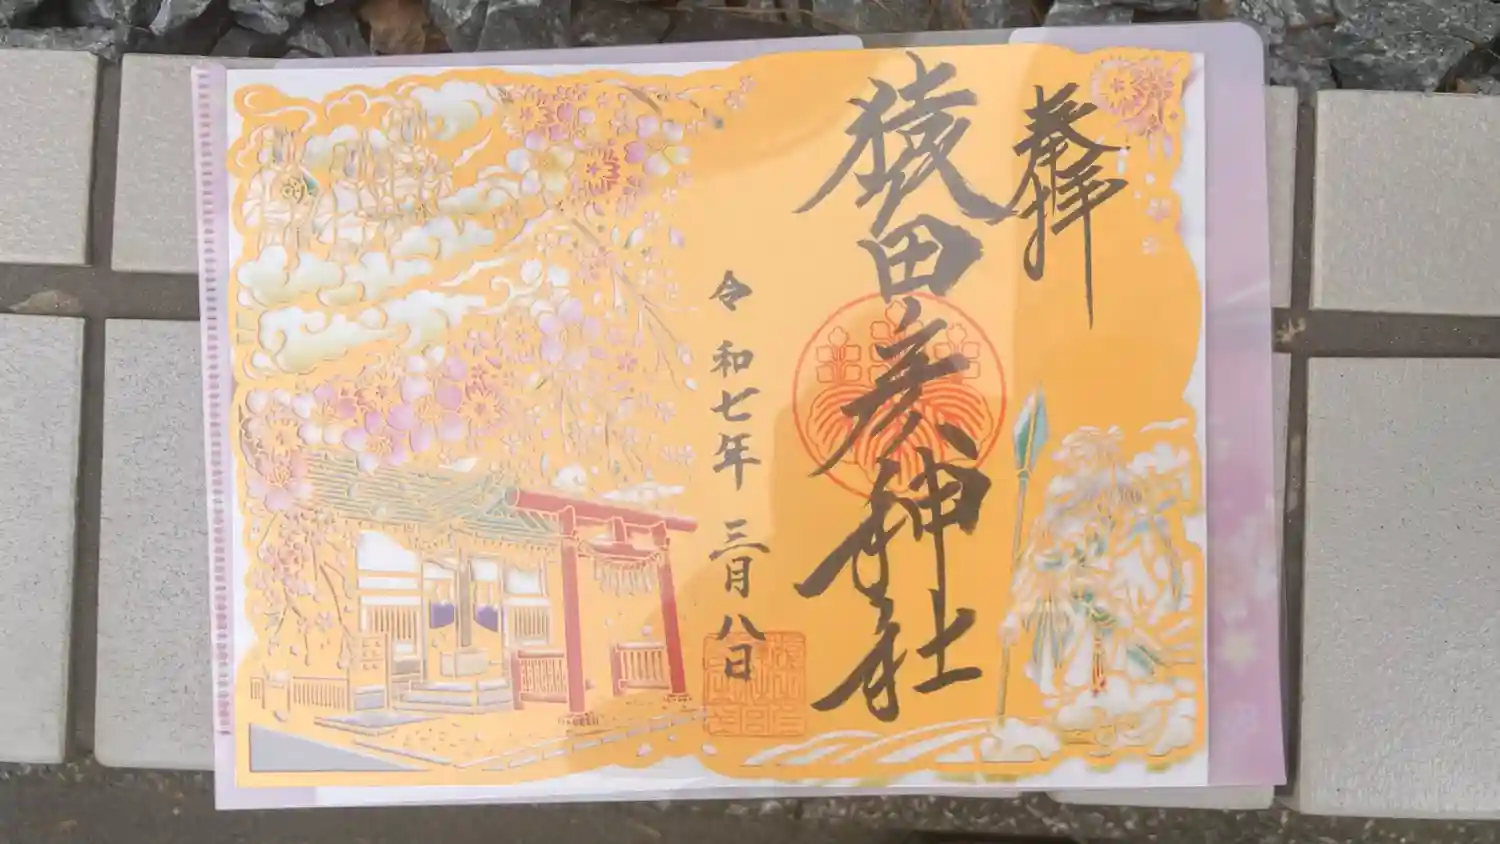 奉拝
猿田彦神社
令和七年三月八日